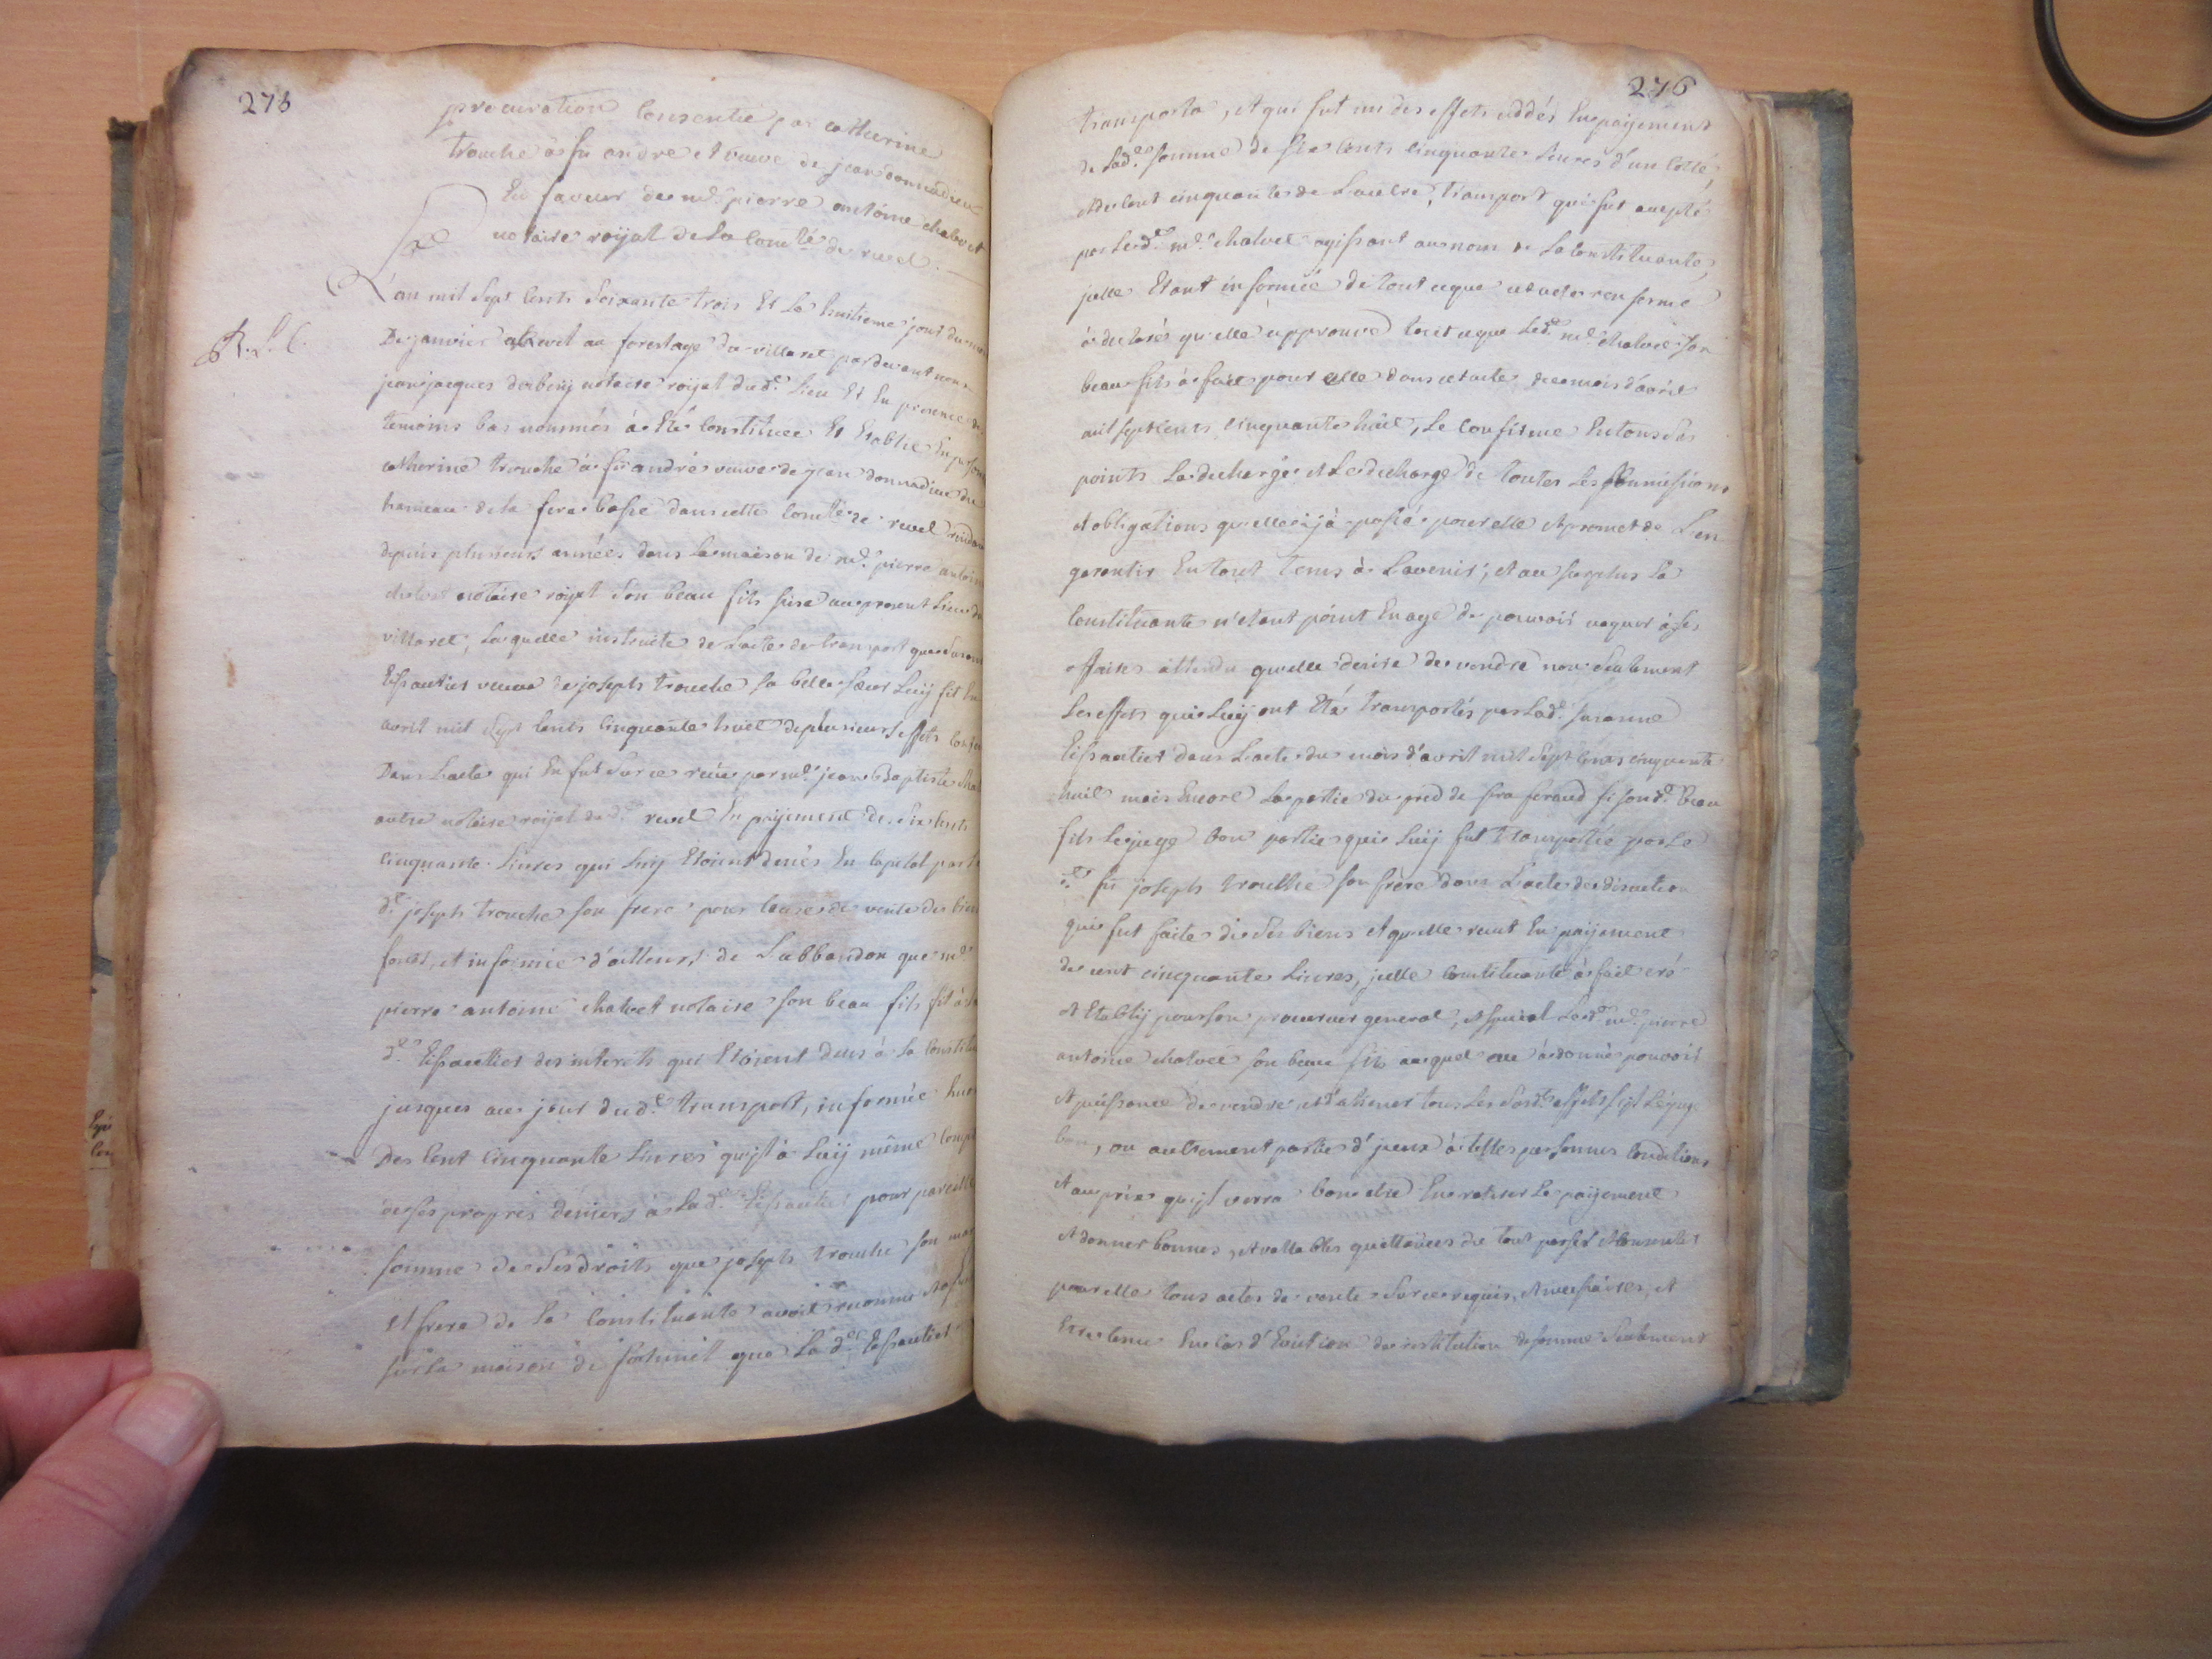 275
procuration Consentie par catherine
trouche à fû andré et veuve de jean donnadieu
En faveur de me pierre antoine chalvet
notaire royal de la Comté de revel.
L'an mil Sept Cents Soixante trois Et Le huitieme jour du mois
De janvier au forestage du villaret pardevant nous
jean jacques notaire roijal dud. Lieu Et En presence des
temoins bas nommés à Eté Constituée Et Etablie En
catherine trouche à fû andré veuve de jean donnadieu du
hameau de la basse dans cette Comté de revel
depuis plusieurs années dans la maison de me. pierre antoine
chalvet notaire roijal Son beau fils au present Lieu du
villaret, Laquelle instruite de L'acte de transport que Susanne
veuve de joseph trouche Sa belle Sœur Luij fit En
avril mil Sept Cents Cinquante huit de plusieurs effets
Dans L'acte qui En fut Sur ce reçu par me. jean Baptiste
autre notaire roijal dud. revel En paijement de Six Cents
Cinquante Livres qui Luij Etoient Deües En Capital par
d. joseph trouche Son frere pour Cause de vente des biens
fonds, et informée d'ailleurs de L'abbandon que me.
pierre antoine chalvet notaire Son beau fils fit à
de. des interets qui Etoient Deus à La Constituante
jusques au jour dud. transport, informée
Des Cent Cinquante Livres qu'jl à Luij même
de Ses propres deniers à Lade. pour pareille
Somme de Ses droits que joseph trouche Son mari
Et frere de La Constituante avoit reconnue
Sur La maison de que La de.
R. L. C.
276
transporta, et qui fut un des effets cédés En paijement
de Lade. Somme de Six Cents Cinquante Livres d'un Cotté,
et de Cent cinquante de L'autre, transport qui fut accepté
par Led. me. chalvet agissant au nom de La Constituante,
jcelle Etant informée de tout ce que cet acte renferme
à declaré qu'elle approuve tout ce que Led. me. chalvet Son
beau fils à fait pour elle dans cet acte du mois d'avril
mil sept Cents Cinquante huit, Le Confirme En tous Ses
points Le decharge de toutes Les Soumissions
et obligations qu'elle à passé pour elle et promet de L'en
garentir En tout tems à L'avenir; et au Surplus La
Constituante n'etant point En age de pouvoir vaquer à Ses
affaires attendu qu'elle desire de vendre non Seulement
Les effets qui Luij ont Eté transportés par Lade. Susanne
dans L'acte du mois d'avril mil Sept Cents cinquante
huit mais Encore La partie du pred de Si Sond. Beau
fils Le juge bon partie qui Luij fut transportée par Le
d. fû joseph trouche Son frere dans L'acte de discution
qui fut faite de Ses biens et qu'elle reçut En paijement
de cent cinquante Livres, jcelle Constituante à fait créé
et Etablij pour Son procureur general, et Special Led. me. pierre
antoine chalvet Son beau fils auquel à donné pouvoir
et puissance de vendre et d'aliener tous Les Susd. effets S'jl Le juge
bon, ou autrement partie d'jceux à telles personnes Conditions
et au prix qu'jl verra bon etre En retirer Le paijement
et donner bonnes, et vallables quittances du tout passer
pour elle tous actes de vente Sur ce requis, et necessaires, et
Etre tenue En Cas d'Eviction de restitution de Somme Seulement